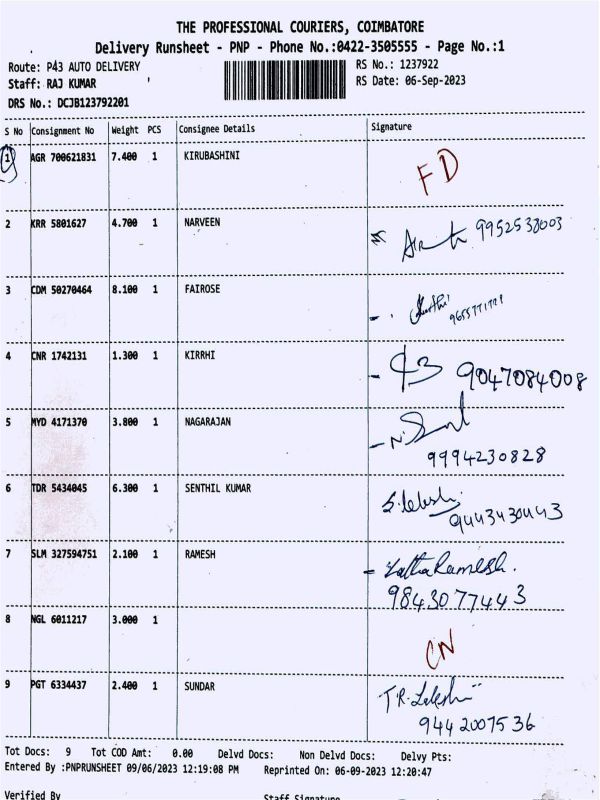 THE PROFESSIONAL COURIERS, COIMBATORE
Delivery Runsheet - PNP - Phone No.:0422-3505555 - Page No.:1
Route: P43 AUTO DELIVERY RS No.: 1237922
Staff: RAJ KUMAR RS Date: 06-Sep-2023
DRS No.: DCJB123792201
S No Consignment No Weight PCS Consignee Details Signature
1 AGR 700621831 7.400 1 KIRUBASHINI FD
2 KRR 5801627 4.700 1 NARVEEN 9952538003
3 CDM 50270464 8.100 1 FAIROSE
4 CNR 1742131 1.300 1 KIRRHI 9047084008
5 MYD 4171370 3.800 1 NAGARAJAN
9994230828
6 TDR 5434045 6.300 1 SENTHIL KUMAR
9443430443
7 SLM 327594751 2.100 1 RAMESH Latha Ramesh.
9843077443
8 NGL 6011217 3.000 1 CN
9 PGT 6334437 2.400 1 SUNDAR
9442007536
Tot Docs: 9 Tot COD Amt: 0.00 Delvd Docs: Non Delvd Docs: Delvy Pts:
Entered By :PNPRUNSHEET 09/06/2023 12:19:08 PM Reprinted On: 06-09-2023 12:20:47
Verified By Staff Signature